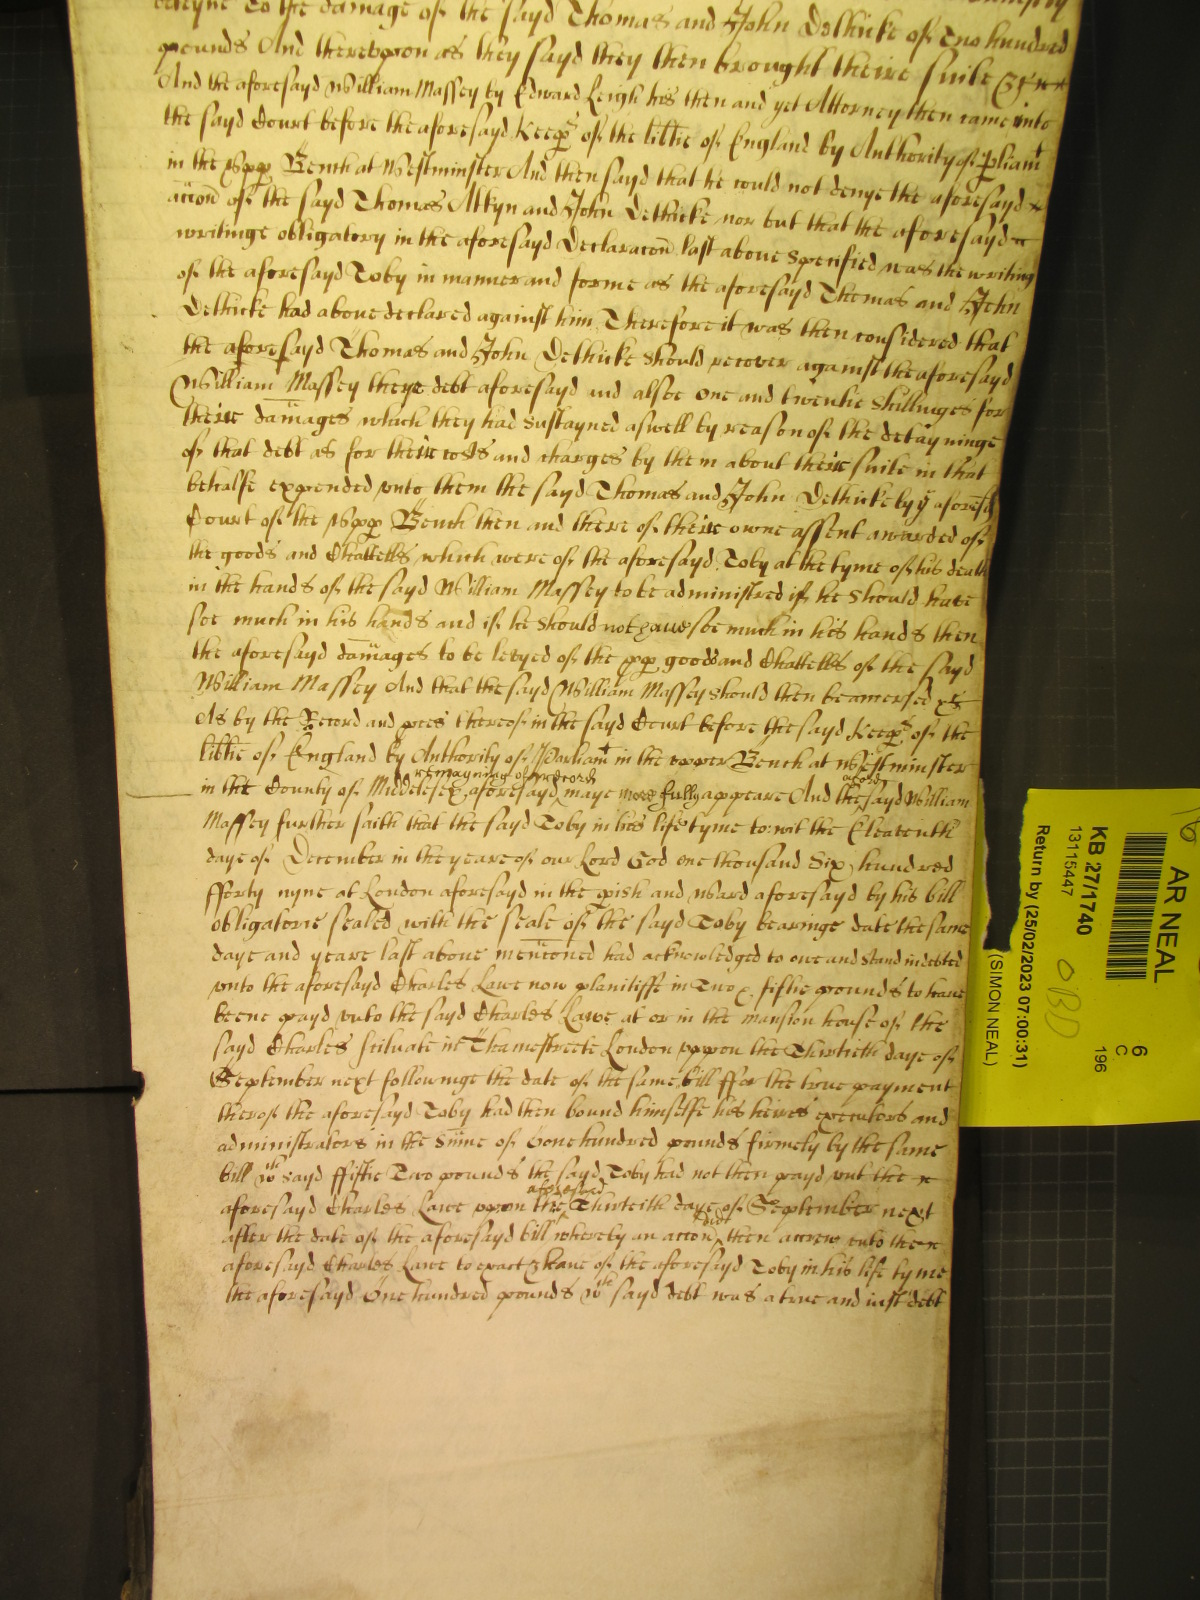 deteyne To the damage of the sayd Thomas and John Dethicke of Two hundred
pounds And thereupon as they sayd they then brought theire suite &c
And the aforesayd William Massey by Edward Leigh his then and yet Attorney then came into
the sayd Court before the aforesayd Keeps of the libtie of England by Authority of pliamt
in the Upp Bench at Westminster And then sayd that he could not denye the aforesayd
accon of the sayd Thomas Alkyn and John Dethicke nor but that the aforesayd
writinge obligatory in the aforesayd Declaracon last above specified was the writing
of the aforesayd Toby in manner and forme as the aforesayd Thomas and John
Dethicke had above declared against him Therefore it was then considered that
the aforesayd Thomas and John Dethicke should recover against the aforesayd
William Massey theire debt aforesayd and alsoe one and twentie shillinges for
theire damages which they had sustayned aswell by reason of the detayninge
of that debt as for theire costs and charges by them about theire suite in that
behalfe expended unto them the sayd Thomas and John Dethicke by ye aforesd
Court of the Upp Bench then and there of theire owne assent awarded of
the goods and Chattells which were of the aforesayd Toby at the tyme of his death
in the hands of the sayd William Massey to be administred if he should have
soe much in his hands and if he should not have soe much in his hands then
the aforesayd damages to be levyed of the pp goods and Chattells of the sayd
William Massey And that the sayd William Massey should then be amersed &c
As by the Record and pces thereof in the sayd Court before the sayd Keeps of the
libtie of England by Authority of Parliamt in the upper Bench at Westminster
remayning of record
in the County of Middlesex aforesayd maye more fully appeare And the sayd William
Massey further saith that the sayd Toby in his life tyme to wit the Eleaventh
daye of December in the yeare of our Lord God one thousand Six hundred
fforty nyne at London aforesayd in the pish and Ward aforesayd by his bill
obligatorie sealed with the seale of the sayd Toby bearinge date the same
daye and yeare last above mencioned had acknowledged to owe and stand indebted
unto the aforesayd Charles Lawe now plaintiffe in Two &. fiftie pounds to have
beene payd unto the sayd Charles Lawe at or in the mansion house of the
sayd Charles scituate in Thamestreete London uppon the Thirtieth daye of
September next followinge the date of the same bill ffor the true payment
therof the aforesayd Toby had then bound himselfe his heires executors and
administrators in the Sume of One hundred pounds firmely by the same
bill wch sayd ffiftie Two pounds the sayd Toby had not then payd unt the
aforesayd
aforesayd Charles Lawe upon the Thirteith daye of September next
after the date of the aforesayd bill whereby an accon then accrew unto the
aforesayd Charles Lawe to exact & have of the aforesayd Toby in his life tyme
the aforesayd One hundred pounds wch sayd debt was a true and iust debt
AR NEAL
6
C
196
KB 27/1740
13115447
OBD
Return by (25/02/2023 07:00:31)
(SIMON NEAL)